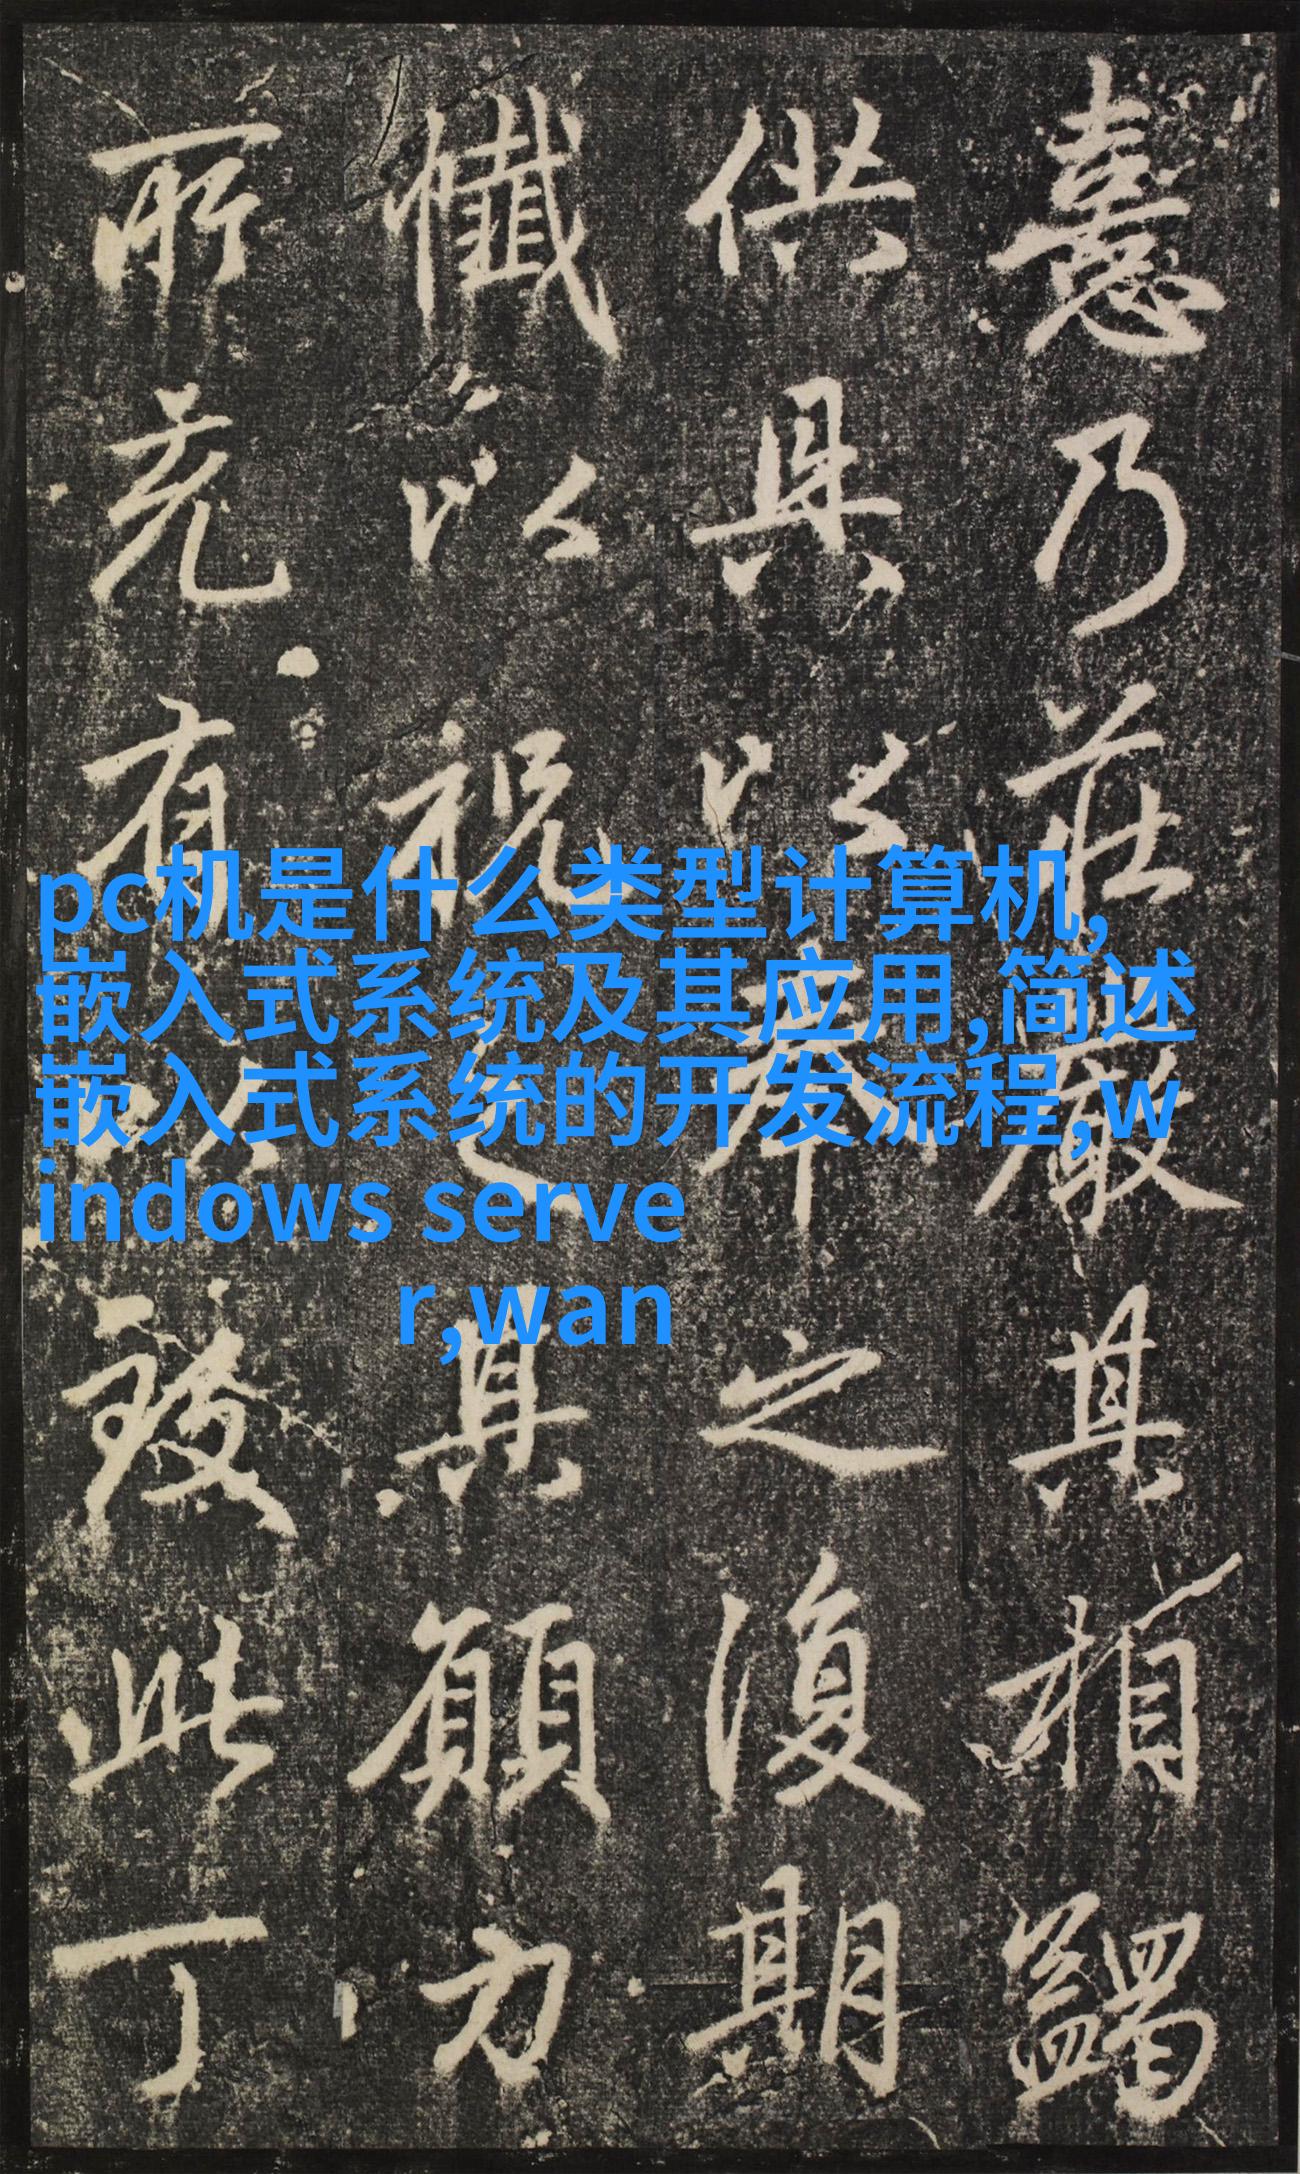 憙乃莊嚴其相蠲
供具以奉之復期
懺以祝之其願力
所有以此丁
pc机是什么类型计算机,
嵌入式系统及其应用,简述
嵌入式系统的开发流程,w
indows serve
r,wan